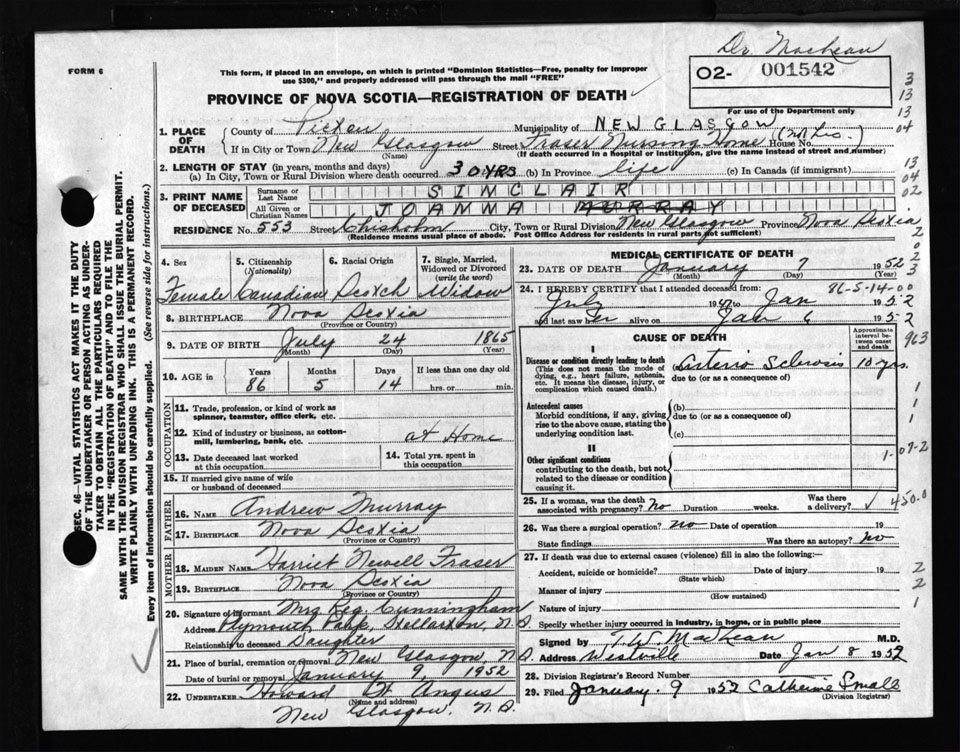 Dr. MacLean
FORM 6
This form, if placed in an envelope, on which is printed "Dominion Statistics—Free, penalty for improper
use $300," and properly addressed will pass through the mail "FREE"
02- 001542
PROVINCE OF NOVA SCOTIA—REGISTRATION OF DEATH ✓
For use of the Department only
3
13
13
04
13
04
02
2
0
2
3
1. PLACE OF DEATH
County of Pictou Municipality of NEW GLASGOW
If in City or Town New Glasgow Street Fraser Nursing Home House No. (not Lic.)
(Name) (If death occurred in a hospital or institution, give the name instead of street and number)
2. LENGTH OF STAY (in years, months and days)
(a) In City, Town or Rural Division where death occurred 30 YRS (b) In Province life (c) In Canada (if immigrant)
3. PRINT NAME OF DECEASED
Surname or Last Name SINCLAIR
All Given or Christian Names JOANNA MURRAY
RESIDENCE No. 553 Street Chisholm City, Town or Rural Division New Glasgow Province Nova Scotia
(Residence means usual place of abode. Post Office Address for residents in rural parts not sufficient)
SEC. 46—VITAL STATISTICS ACT MAKES IT THE DUTY
OF THE UNDERTAKER OR PERSON ACTING AS UNDER-
TAKER TO OBTAIN ALL THE PARTICULARS REQUIRED
IN THE "REGISTRATION OF DEATH" AND TO FILE THE
SAME WITH THE DIVISION REGISTRAR WHO SHALL ISSUE THE BURIAL PERMIT.
WRITE PLAINLY WITH UNFADING INK. THIS IS A PERMANENT RECORD.
Every item of information should be carefully supplied. (See reverse side for instructions.)
4. Sex
Female
5. Citizenship
(Nationality)
Canadian
6. Racial Origin
Scotch
7. Single, Married,
Widowed or Divorced
(write the word)
Widow
8. BIRTHPLACE Nova Scotia
(Province or Country)
9. DATE OF BIRTH July 24 1865
(Month) (Day) (Year)
10. AGE in Years Months Days If less than one day
86 5 14 hrs. or min.
OCCUPATION
11. Trade, profession, or kind of work as
spinner, teamster, office clerk, etc.
12. Kind of industry or business, as cotton-
mill, lumbering, bank, etc. at Home
13. Date deceased last worked
at this occupation
14. Total yrs. spent in
this occupation
15. If married give name of wife
or husband of deceased
FATHER
16. NAME Andrew Murray
17. BIRTHPLACE Nova Scotia
(Province or Country)
MOTHER
18. MAIDEN NAME Harriet Newell Fraser
19. BIRTHPLACE Nova Scotia
(Province or Country)
20. Signature of informant Mrs Reg. Cunningham
Address Plymouth Park, Stellarton, N.S.
Relationship to deceased Daughter
21. Place of burial, cremation or removal New Glasgow, N.S.
Date of burial or removal January 9 1952
22. UNDERTAKER Howard W. Angus
(Name and address)
New Glasgow, N.S.
MEDICAL CERTIFICATE OF DEATH
23. DATE OF DEATH January 7 1952
(Month) (Day) (Year)
24. I HEREBY CERTIFY that I attended deceased from: 86-5-14-00
July 19 to Jan 1952
and last saw her alive on Jan 6 1952
963
CAUSE OF DEATH
Approximate
interval be-
tween onset
and death
I
Disease or condition directly leading to death
(This does not mean the mode of
dying, e.g., heart failure, asthenia,
etc. It means the disease, injury, or
complication which caused death.)
Arterio Sclerosis 10 yrs.
due to (or as a consequence of)
Antecedent causes
Morbid conditions, if any, giving
rise to the above cause, stating the
underlying condition last.
(b)
due to (or as a consequence of)
(c)
1
1
II
Other significant conditions
contributing to the death, but not
related to the disease or condition
causing it.
1-07-2
25. If a woman, was the death
associated with pregnancy? No Duration weeks. Was there
a delivery? ✓ 450.0
26. Was there surgical operation? no Date of operation 19
State findings Was there an autopsy? no
27. If death was due to external causes (violence) fill in also the following:—
Accident, suicide or homicide? Date of injury 19
(State which)
Manner of injury
(How sustained)
Nature of injury
2
2
1
Specify whether injury occurred in industry, in home, or in public place
Signed by T.W. MacLean M.D.
Address Westville Date Jan 8 1952
28. Division Registrar's Record Number
29. Filed January. 9 1952 Catherine Small
(Division Registrar)